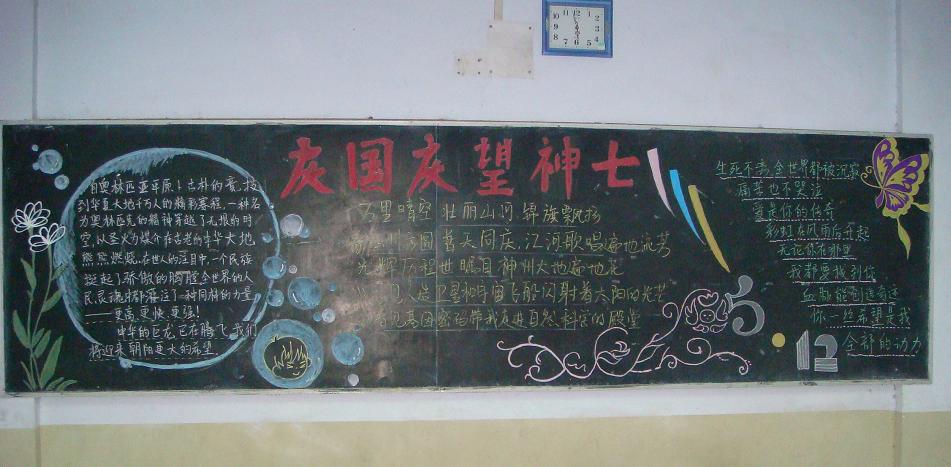 庆国庆望神七
自奥林匹亚平原!古朴的赛,技
到华夏大地千万人的精彩赛程,一种名
为奥林匹克的精神穿越了无限的时
空,从圣火为媒介在古老的中华大地
熊熊燃烧,在世人的注目中,一个民族
挺起了骄傲的胸膛,全世界的人
民,灵魂里都灌注了一种同样的力量
——更高,更快,更强!
中华的巨龙,已在腾飞,我们
将迎来朝阳更大的希望
万里晴空 壮丽山河 锦旗飘扬
神州方圆 普天同庆,江河歌唱遍地流芳
光辉历程世瞩目 神州大地遍地花
人造卫星和宇宙飞船闪射着太阳的光芒
看见基因密码带我走进自然科学的殿堂
生死不离,全世界都被沉寂
痛苦也不哭泣
爱是你的传奇
彩虹在风雨后升起
无论你在哪里
我都要找到你
血脉能创造奇迹
你一丝希望是我
全部的动力
12